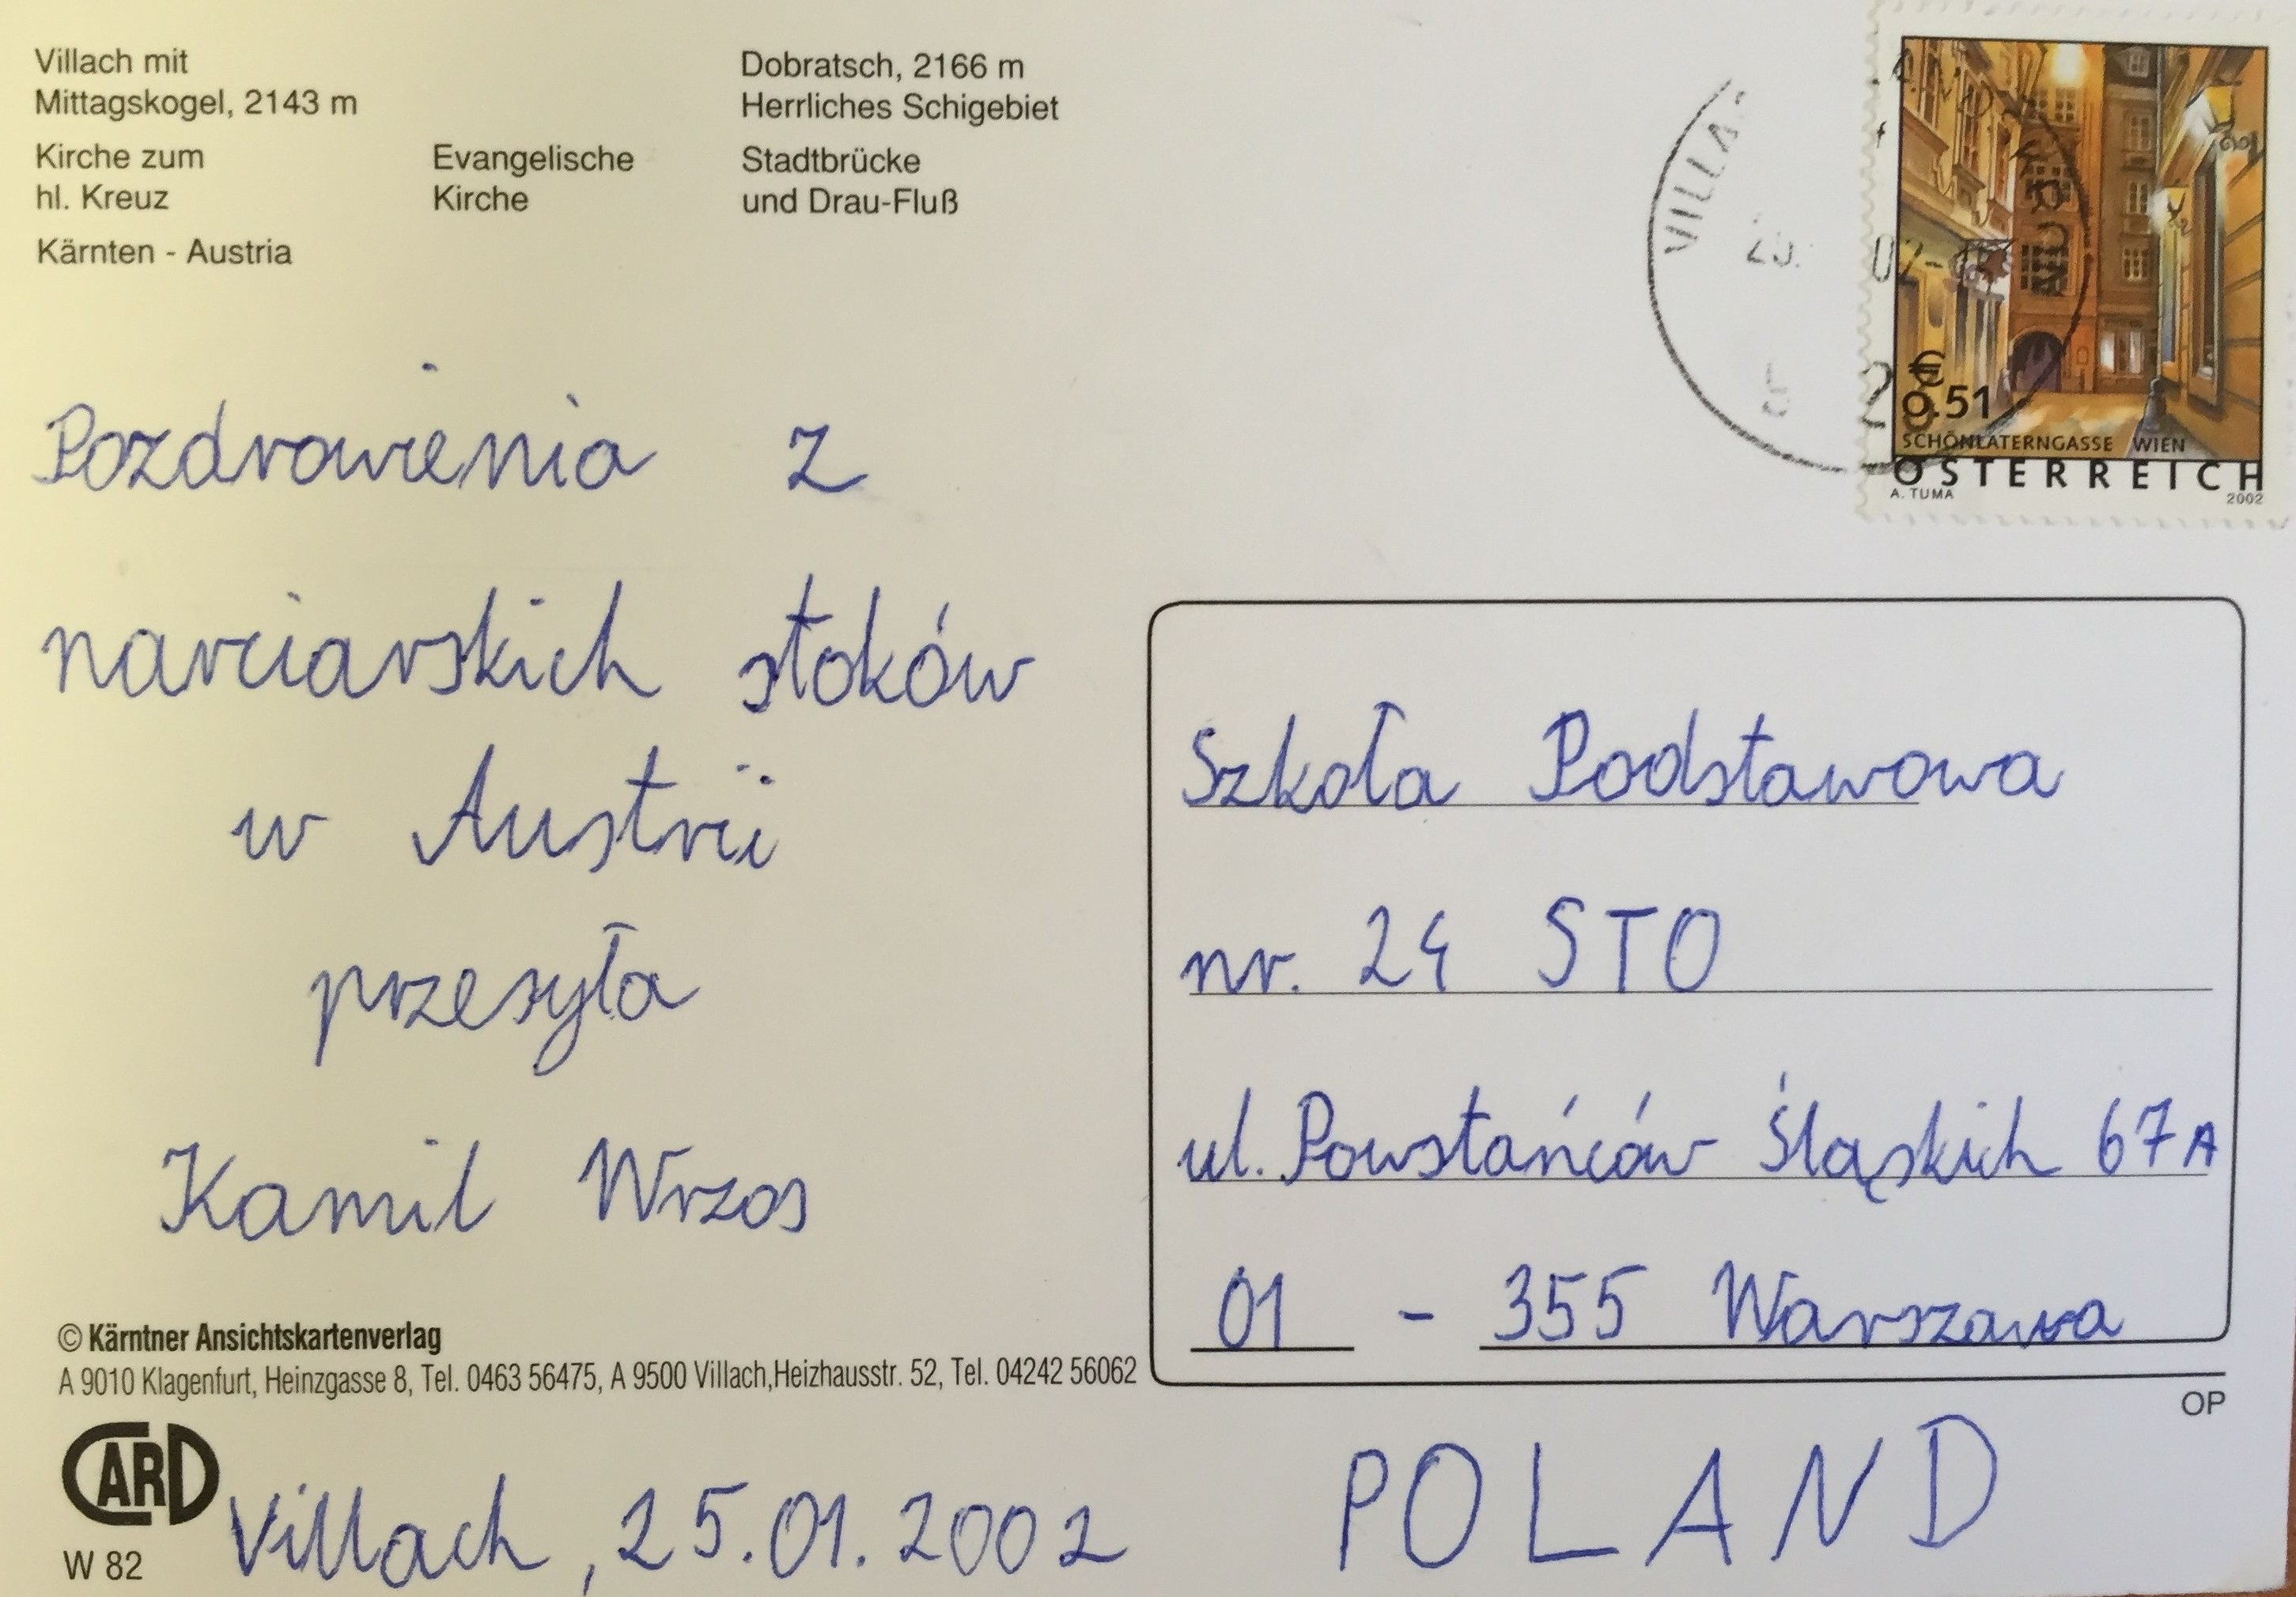 Villach mit
Mittagskogel, 2143 m
Dobratsch, 2166 m
Herrliches Schigebiet
Kirche zum
hl. Kreuz
Evangelische
Kirche
Stadtbrücke
und Drau-Fluß
Kärnten - Austria
Pozdrowienia z
narciarskich stoków
w Austrii
przesyła
Kamil Wrzos
© Kärntner Ansichtskartenverlag
A 9010 Klagenfurt, Heinzgasse 8, Tel. 0463 56475, A 9500 Villach,Heizhausstr. 52, Tel. 04242 56062
CARD
W 82
Villach, 25.01.2002
€
0.51
SCHÖNLATERNGASSE WIEN
ÖSTERREICH
A. TUMA 2002
Szkoła Podstawowa
nr. 24 STO
ul. Powstańców Śląskich 67A
01 - 355 Warszawa
OP
POLAND